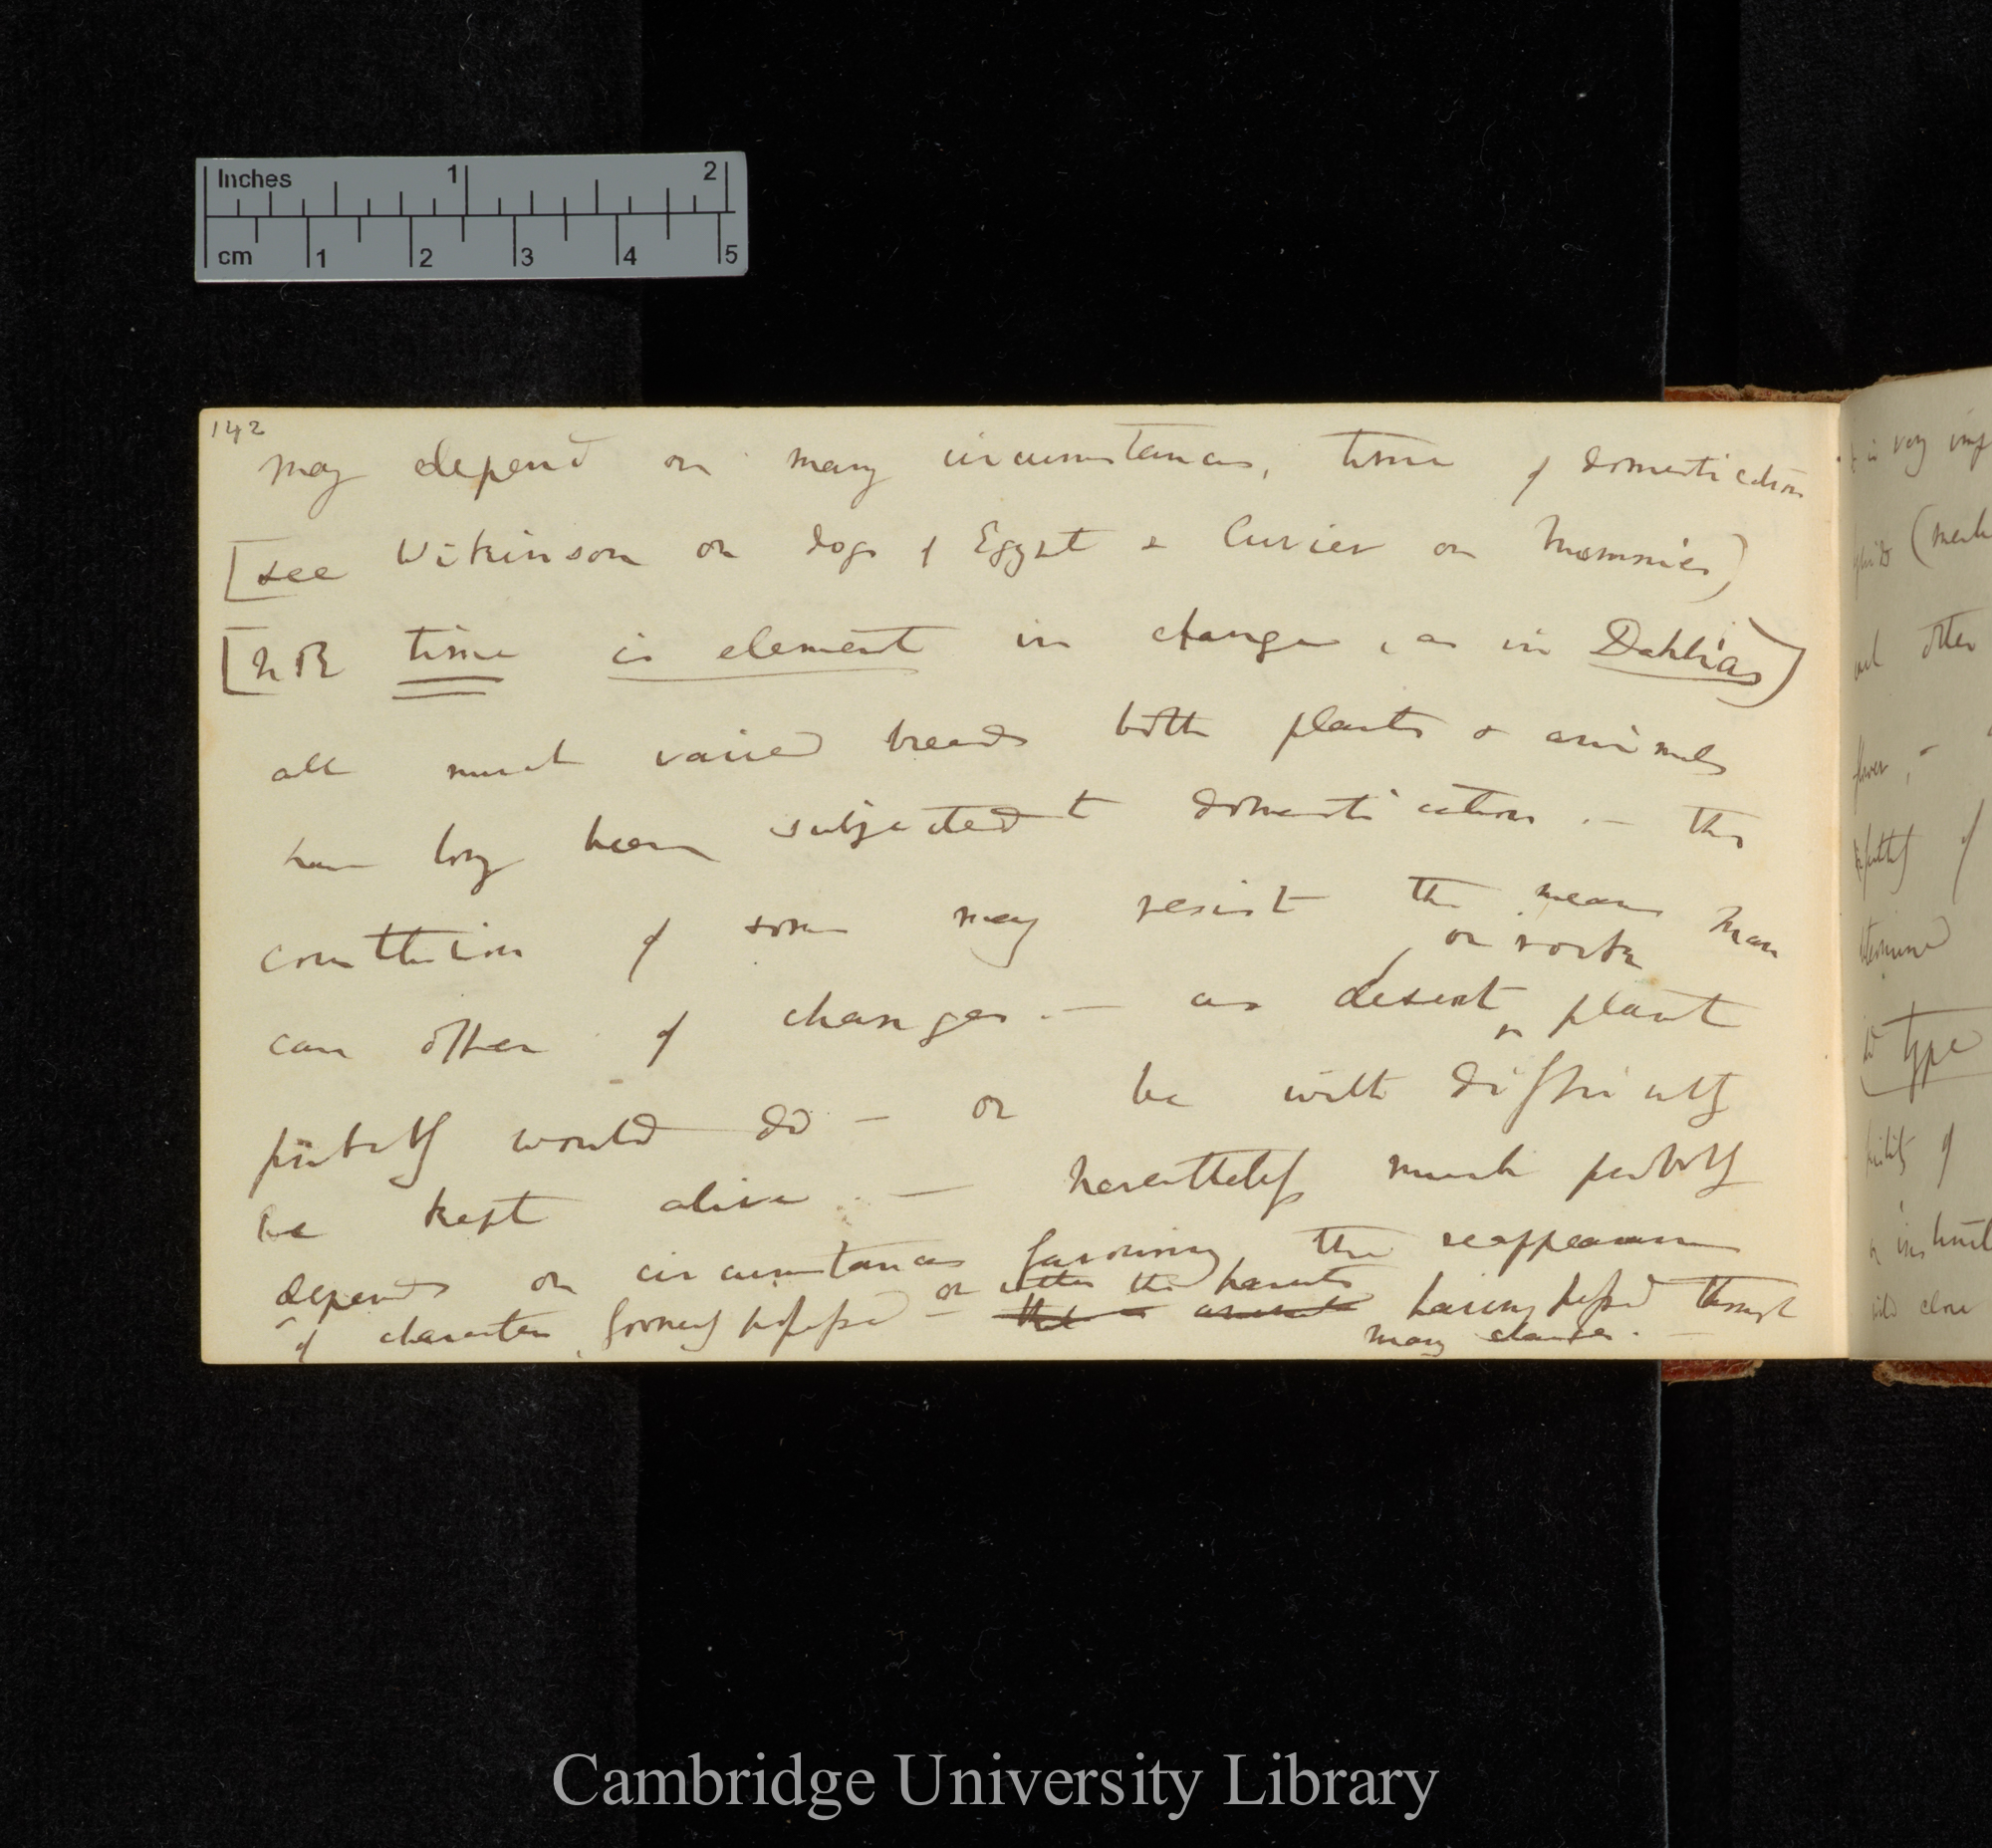 Inches 1 2
cm 1 2 3 4 5
142
may depend on many circumstances, time of domestication
[see Wilkinson on dogs of Egypt & Cuvier on Mummies)
[NB time is element in changes, as in Dahlias)
all much varied breeds both plants & animals
have long been subjected to domestication. — the
constitution of some may resist the means man
or rock
can offer of changes. — as desert plant
probably would do — or be with difficulty
be kept alive. — nevertheless much probably
depends on circumstances favouring the reappearance
or after the parents
of characters formerly possessed — that having passed through
many changes. —
it is very
(
other
flower, —
of
determined
type
of
close
Cambridge University Library